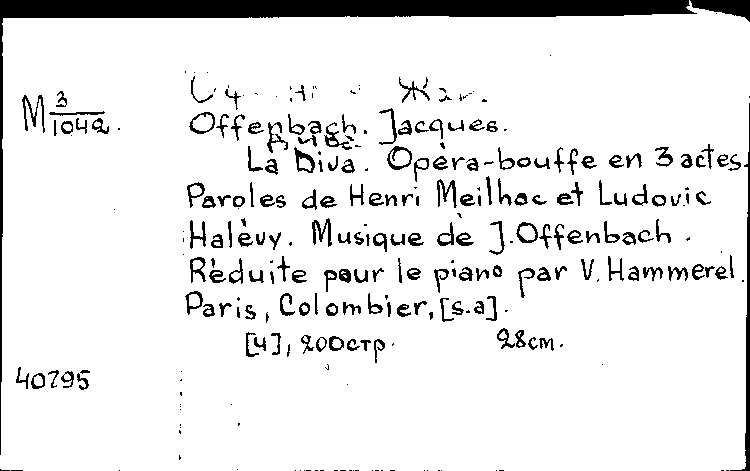 M 3/1042.
Жак.
Offenbach. Jacques.
La Diva. Opèra-bouffe en 3 actes.
Paroles de Henri Meilhac et Ludovic
Halèvy. Musique de J. Offenbach.
Rèduite pour le piano par V. Hammerel.
Paris, Colombier, [s.a].
[4], 200стр. 28см.
40795